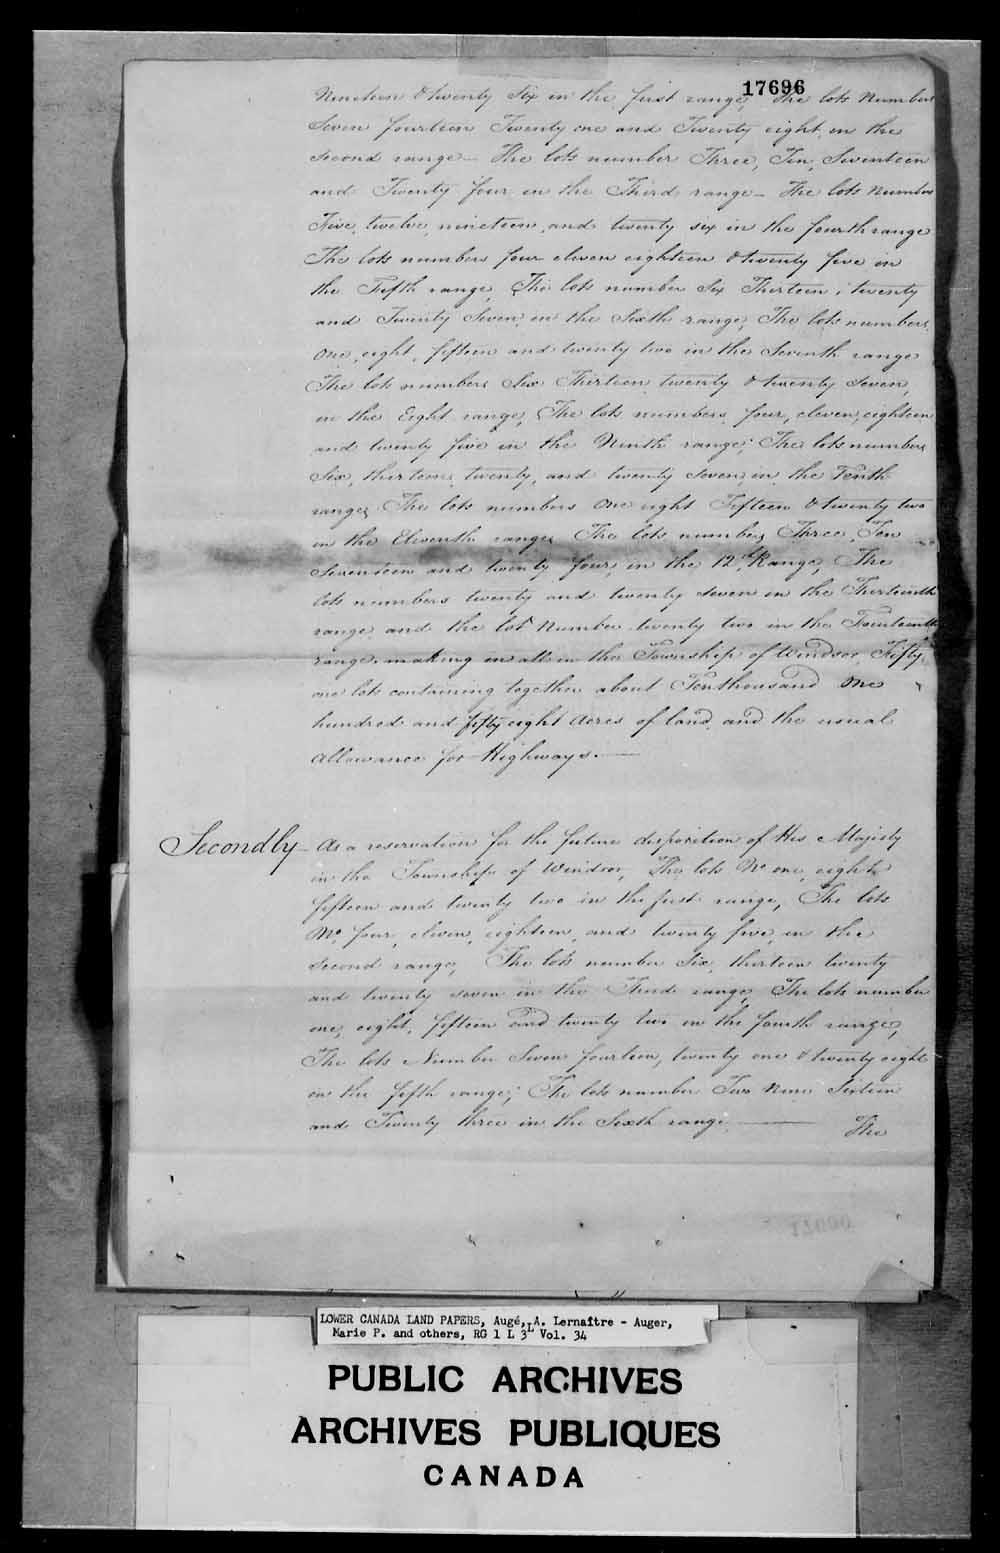 17696
Nineteen & twenty Six in the first range, The lots Number
Seven fourteen Twenty one and Twenty eight in the
Second range – The lots number Three, Ten, Seventeen
and Twenty four in the Third range – The lots Number
Five, twelve, nineteen, and twenty six in the fourth range
The lots numbers four eleven eighteen & twenty five in
the Fifth range, The lots number Six Thirteen, twenty
and Twenty Seven, in the Sixth range, The lots numbers,
One, eight, fifteen and twenty two in the Seventh range
The lots numbers Six Thirteen twenty & twenty Seven,
in the Eight range, The lots numbers four, eleven, eighteen
and twenty five in the Ninth range; The lots numbers
Six, thirteen, twenty, and twenty Seven, in the Tenth
range, The lots numbers One eight Fifteen & twenty two
in the Eleventh range, The lots numbers Three, Ten
Seventeen and twenty four, in the 12th Range, The
lots numbers twenty and twenty seven in the Thirteenth
range, and the lot Number twenty two in the Fourteenth
range. making in all in the Township of Windsor, Fifty
one lots containing together about Ten thousand One
hundred and fifty eight Acres of land and the usual
allowance for Highways. —
Secondly – As a reservation for the future disposition of His Majesty
in the Township of Windsor, The lots No one, eight
fifteen and twenty two in the first range, The lots
No. four, eleven, eighteen, and twenty five, in the
Second range, The lots number Six, thirteen twenty
and twenty seven in the Third range, The lots number
one, eight, fifteen and twenty two in the fourth range,
The lots Number Seven fourteen, twenty one & twenty eight
in the fifth range; The lots number Two Nine Sixteen
and Twenty three in the Sixth range — The
LOWER CANADA LAND PAPERS, Augé, A. Lernaître - Auger,
Marie P. and others, RG 1 L 3L Vol. 34
PUBLIC ARCHIVES
ARCHIVES PUBLIQUES
CANADA